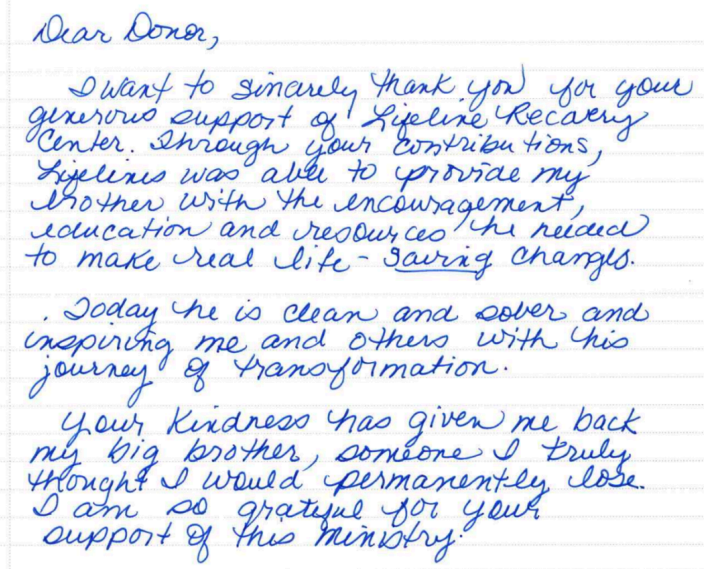 Dear Donor,
I want to sincarely thank you for your
generous support of Lifeline Recavery
Center. Through your contributions,
Lifelines was able to provide my
brother with the encouragement,
education and resources he needed
to make real life-saving changes.
. Today he is clean and sober and
inspiring me and others with his
journey of transformation.
Your kindness has given me back
my big brother, someone I truly
thought I would permanently lose.
I am so grateful for your
support of this ministry.